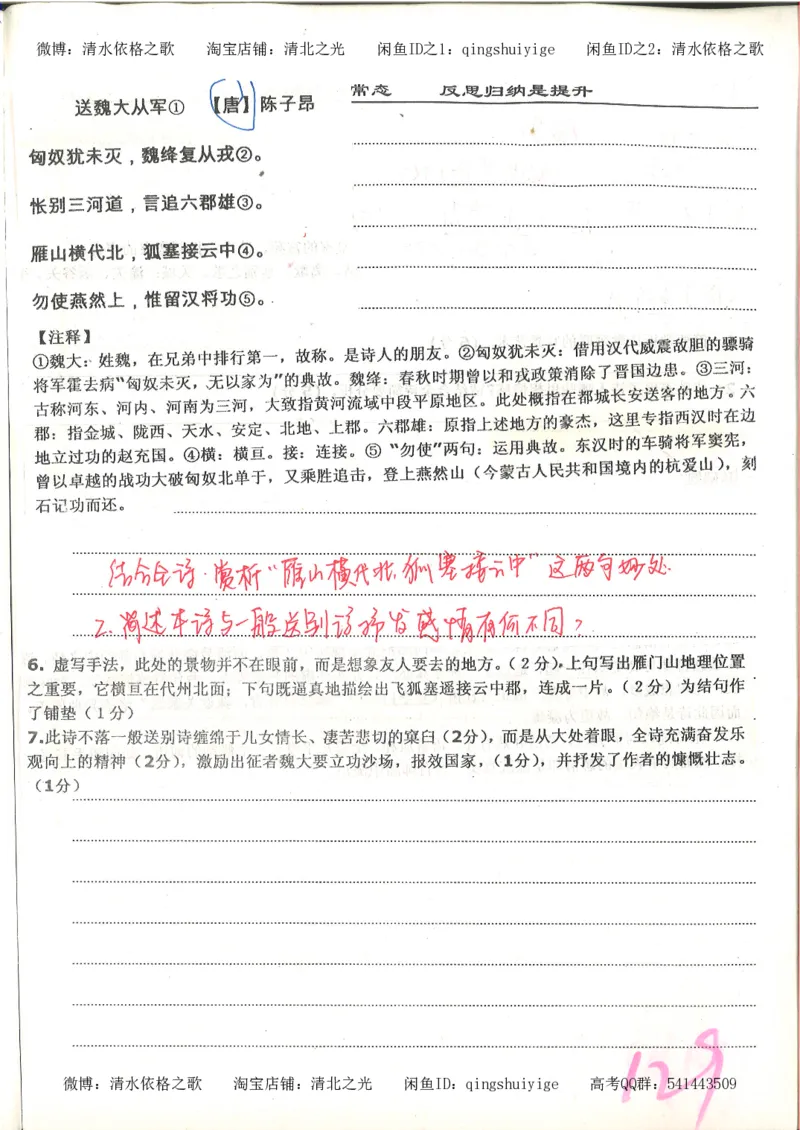 微博：清水依格之歌　　淘宝店铺：清北之光　　闲鱼ID之1：qingshuiyige　　闲鱼ID之2：清水依格之歌
常态　　反思归纳是提升
送魏大从军①　【唐】陈子昂
匈奴犹未灭，魏绛复从戎②。
怅别三河道，言追六郡雄③。
雁山横代北，狐塞接云中④。
勿使燕然上，惟留汉将功⑤。
【注释】
①魏大：姓魏，在兄弟中排行第一，故称。是诗人的朋友。②匈奴犹未灭：借用汉代威震敌胆的骠骑
将军霍去病“匈奴未灭，无以家为”的典故。魏绛：春秋时期曾以和戎政策消除了晋国边患。③三河：
古称河东、河内、河南为三河，大致指黄河流域中段平原地区。此处概指在都城长安送客的地方。六
郡：指金城、陇西、天水、安定、北地、上郡。六郡雄：原指上述地方的豪杰，这里专指西汉时在边
地立过功的赵充国。④横：横亘。接：连接。⑤ “勿使”两句：运用典故。东汉时的车骑将军窦宪，
曾以卓越的战功大破匈奴北单于，又乘胜追击，登上燕然山（今蒙古人民共和国境内的杭爱山），刻
石记功而还。
结合全诗·赏析“雁山横代北，狐塞接云中”这两句妙处
2.简述本诗与一般送别诗抒发感情有何不同？
6. 虚写手法，此处的景物并不在眼前，而是想象友人要去的地方。（2分）。上句写出雁门山地理位置
之重要，它横亘在代州北面；下句既逼真地描绘出飞狐塞遥接云中郡，连成一片。（2分）为结句作
了铺垫（1分）
7.此诗不落一般送别诗缠绵于儿女情长、凄苦悲切的窠臼（2分），而是从大处着眼，全诗充满奋发乐
观向上的精神（2分），激励出征者魏大要立功沙场，报效国家，（1分），并抒发了作者的慷慨壮志。
（1分）
129
微博：清水依格之歌　　淘宝店铺：清北之光　　闲鱼ID：qingshuiyige　　高考QQ群：541443509